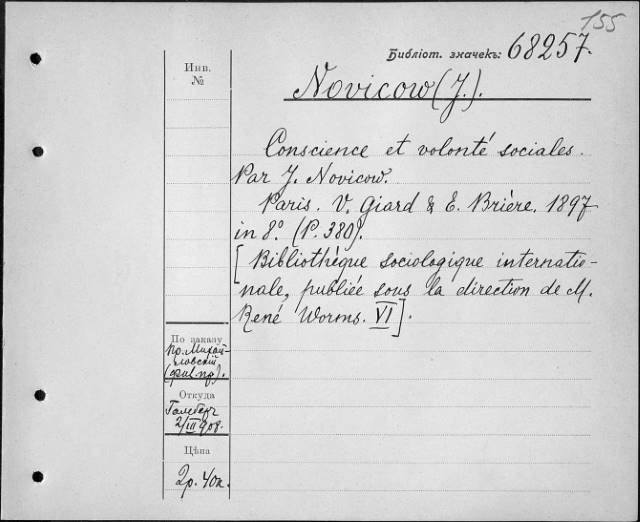 155
Библіот. значекъ: 68257.
Инв.
№
Novicow (J.).
Conscience et volonté sociales.
Par J. Novicow.
Paris. V. Giard & E. Brière. 1897
in 8º. (P. 380).
[Bibliothèque sociologique internatio-
nale, publiée sous la direction de M.
René Worms. VI].
По заказу
пр. Михай-
ловскій
(фил пр).
Откуда
2/III 908.
Цѣна
2р. 40к.